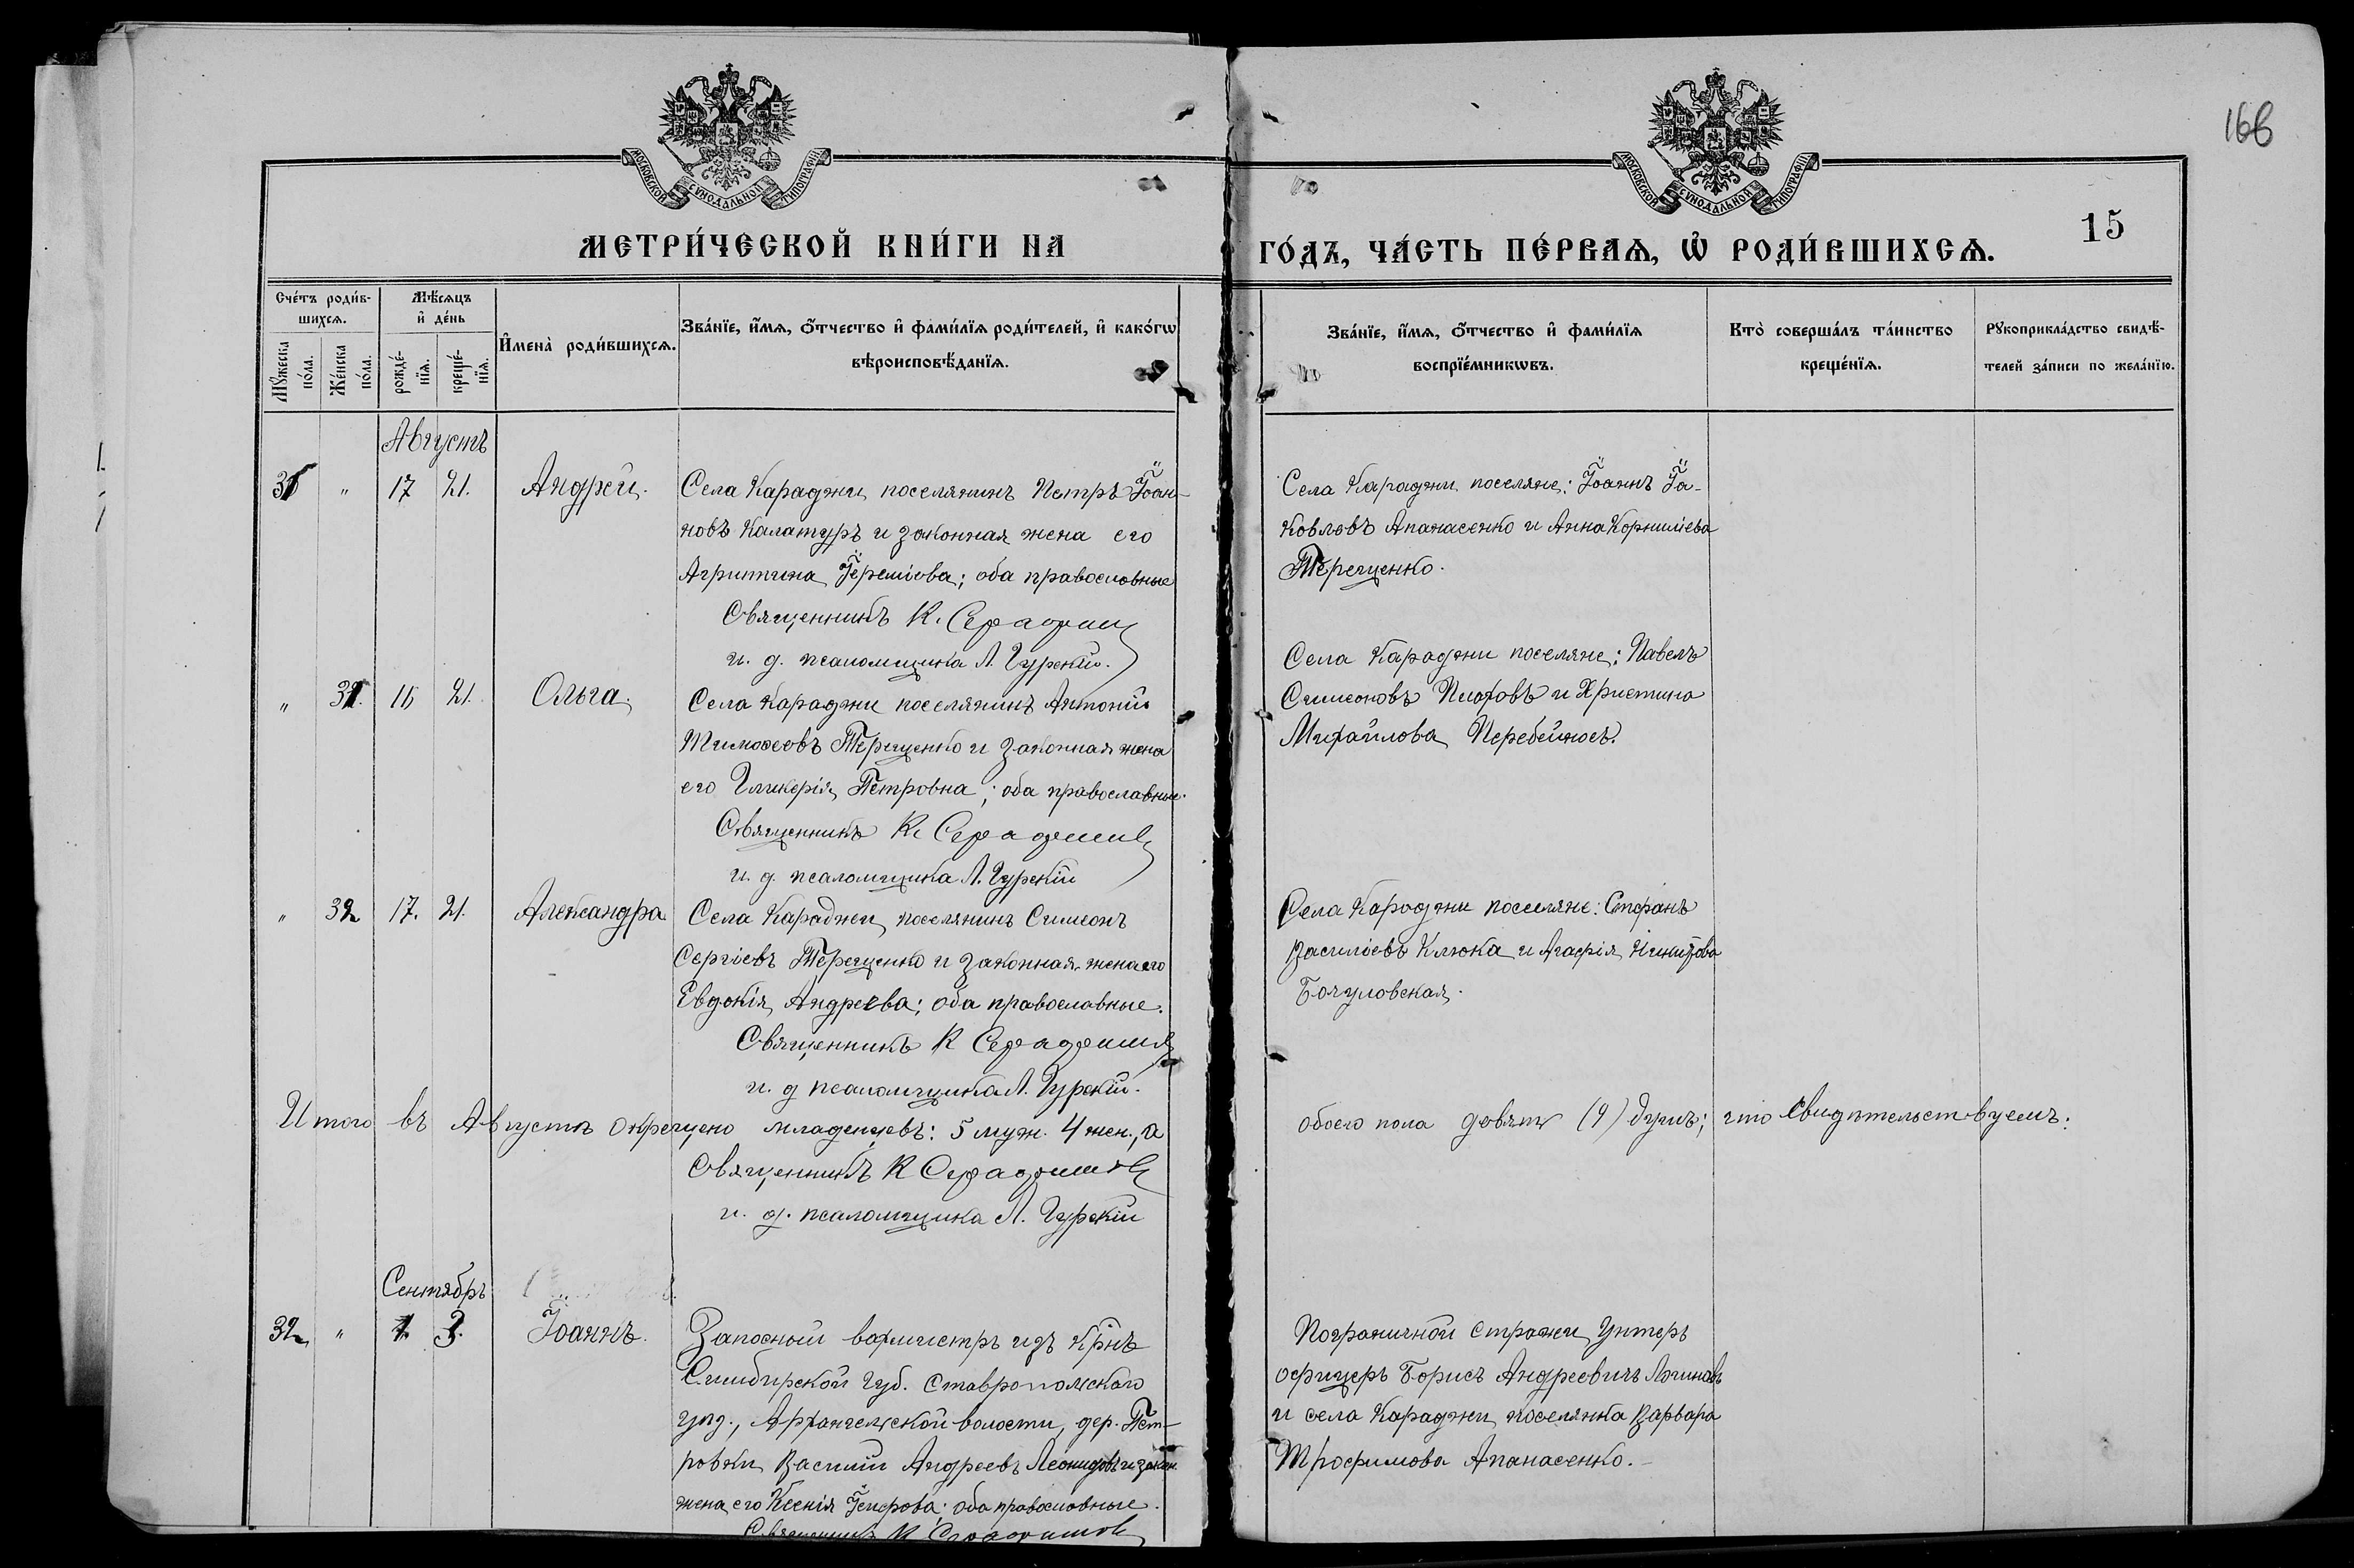 166
МОСКОВСКОЙ СУНОДАЛЬНОЙ ТИПОГРАФІИ
МОСКОВСКОЙ СУНОДАЛЬНОЙ ТИПОГРАФІИ
МЕТРИ́ЧЕСКОЙ КНИ́ГИ НА
ГО́ДЪ, ЧА́СТЬ ПЕ́РВАѦ, Ѡ҆ РОДИ́ВШИХСѦ.
15
Сче́тъ роди́в-
шихсѧ.
Мꙋ́жеска по́ла.
Же́нска по́ла.
Мѣ́сяцъ
и҆ де́нь
рожде́-
нїѧ.
креще́-
нїѧ.
И҆мена̀ роди́вшихсѧ.
Зва́нїе, и҆́мѧ, ѻ҆́тчество и҆ фами́лїѧ роди́телей, и҆ како́гѡ
вѣроисповѣ́данїѧ.
Зва́нїе, и҆́мѧ, ѻ҆́тчество и҆ фами́лїѧ
воспрїе́мникѡвъ.
Кто̀ соверша́лъ та́инство
креще́нїѧ.
Рꙋкоприкла́дство свидѣ́-
телей за́писи по жела́нїю.
Августъ
31 " 17 21. Андрей.
Села Караджи поселянинъ Петръ Іоан-
новъ Калатуръ и законная жена его
Агрипина Іереміова; оба православные
Священникъ К. Серафимовъ
и. д. псаломщика Л. Гурскій.
Села Караджи поселяне: Іоаннъ Іа-
ковлевъ Апанасенко и Анна Корниліева
Терещенко.
" 31. 16 21. Ольга.
Села Караджи поселянинъ Антоній
Тимоѳеовъ Терещенко и законная жена
его Гликерія Петровна; оба православные.
Священникъ К. Серафимовъ
и. д. псаломщика Л. Гурскій
Села Караджи поселяне: Павелъ
Симеоновъ и Христина
Михайлова Перебейносъ.
" 32 17. 21. Александра
Села Караджи поселянинъ Симеонъ
Сергіевъ Терещенко и законная жена его
Евдокія Андреева; оба православные.
Священникъ К Серафимовъ
и. д псаломщика Л. Гурскій.
Села Караджи поселяне: Стефанъ
Василіевъ Клюка и Агафія Никитова
Богуловская.
Итого въ Августѣ окрещено младенцевъ: 5 муж. 4 жен., а
обоего пола девять (9) душъ; что свидѣтельствуемъ:
Священникъ К Серафимовъ
и. д. псаломщика Л. Гурскій
Сентябрь
32 " 1. 3. Іоаннъ.
Запасный вахмистръ изъ крнъ
Симбирской губ. Ставропольскаго
уѣз., Архангельской волости, дер. Пет-
ровки Василій Андреевъ Леонидовъ и закон.
жена его Ксенія; оба православные.
Священникъ К Серафимовъ
Пограничной стражи Унтеръ
офицеръ Борисъ Андреевичъ Логиновъ
и села Караджи поселянка Варвара
Трофимова Апанасенко.